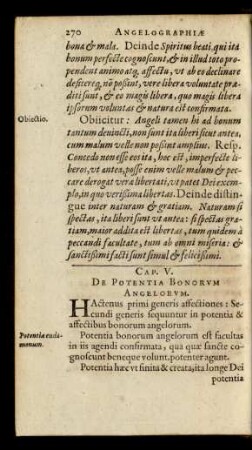 270 ANGELOGRAPHIÆ
bona & mala. Deinde Spiritus beati, qui ita
bonum perfecte cognoscunt, & in illud toto pro-
pendent animo atq, affectu, vt ab eo declinare
aut desciscere, nō possint, vere libera voluntate præ-
diti sunt, & eo magis libera, quo magis libera
ipsorum voluntas & natura est confirmata.
Obiectio.
Obiicitur: Angeli tamen hi ad bonum
tantum devincti, non sunt ita liberi sicut antea,
cum malum velle non possint amplius. Resp.
Concedo non esse eos ita, hoc est, imperfecte li-
beros, vt antea, posse enim velle malum & pec-
care derogat vera libertati, vt patet Dei exem-
plo, in quo verissima libertas. Deinde distin-
gue inter naturam & gratiam. Naturam si
spectas, ita liberi sunt vt antea: si spectas gra-
tiam, maior addita est libertas, tum quidem à
peccandi facultate, tum ab omni miseria: &
sanctissimi facti sunt simul & felicissimi.
CAP. V.
DE POTENTIA BONORVM
ANGELORVM.
HActenus primi generis affectiones: Se-
cundi generis sequuntur in potentia &
affectibus bonorum angelorum.
Potentia bonorum angelorum est facultas
in iis agendi confirmata, qua quæ sancte co-
gnoscunt beneque volunt, potenter agunt.
Potentia hæc vt finita & creata, ita longe Dei
potentia